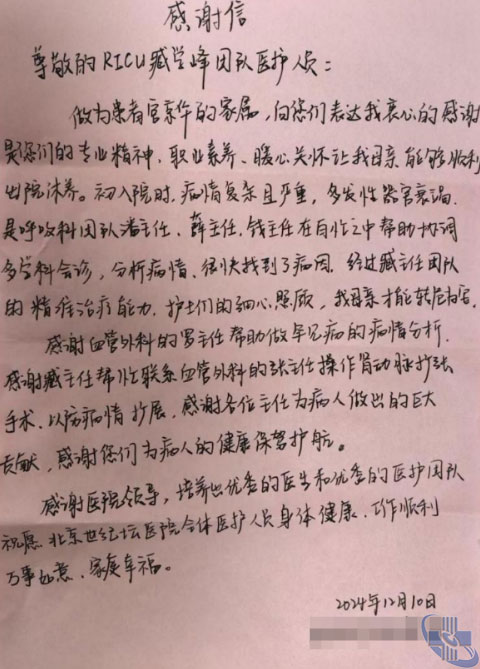 感谢信
尊敬的RICU臧学峰团队医护人员：
做为患者官亲华的家属，向您们表达我衷心的感谢
是您们的专业精神、职业素养、暖心关怀让我母亲能够顺利
出院休养。初入院时，病情复杂且严重，多发性器官衰竭，
是呼吸科团队潘主任、薛主任、钱主任在百忙之中帮助协调
多学科会诊，分析病情、很快找到了病因。经过臧主任团队
的精准治疗能力、护士们的细心照顾，我母亲才能转危为安。
感谢血管外科的罗主任帮助做罕见病的病情分析，
感谢臧主任帮忙联系血管外科的张主任操作肾动脉扩张
手术，以防病情扩展，感谢各位主任为病人做出的巨大
贡献，感谢您们为病人的健康保驾护航。
感谢医院领导，培养出优秀的医生和优秀的医护团队
祝愿北京世纪坛医院全体医护人员身体健康、工作顺利
万事如意、家庭幸福。
2024年12月10日